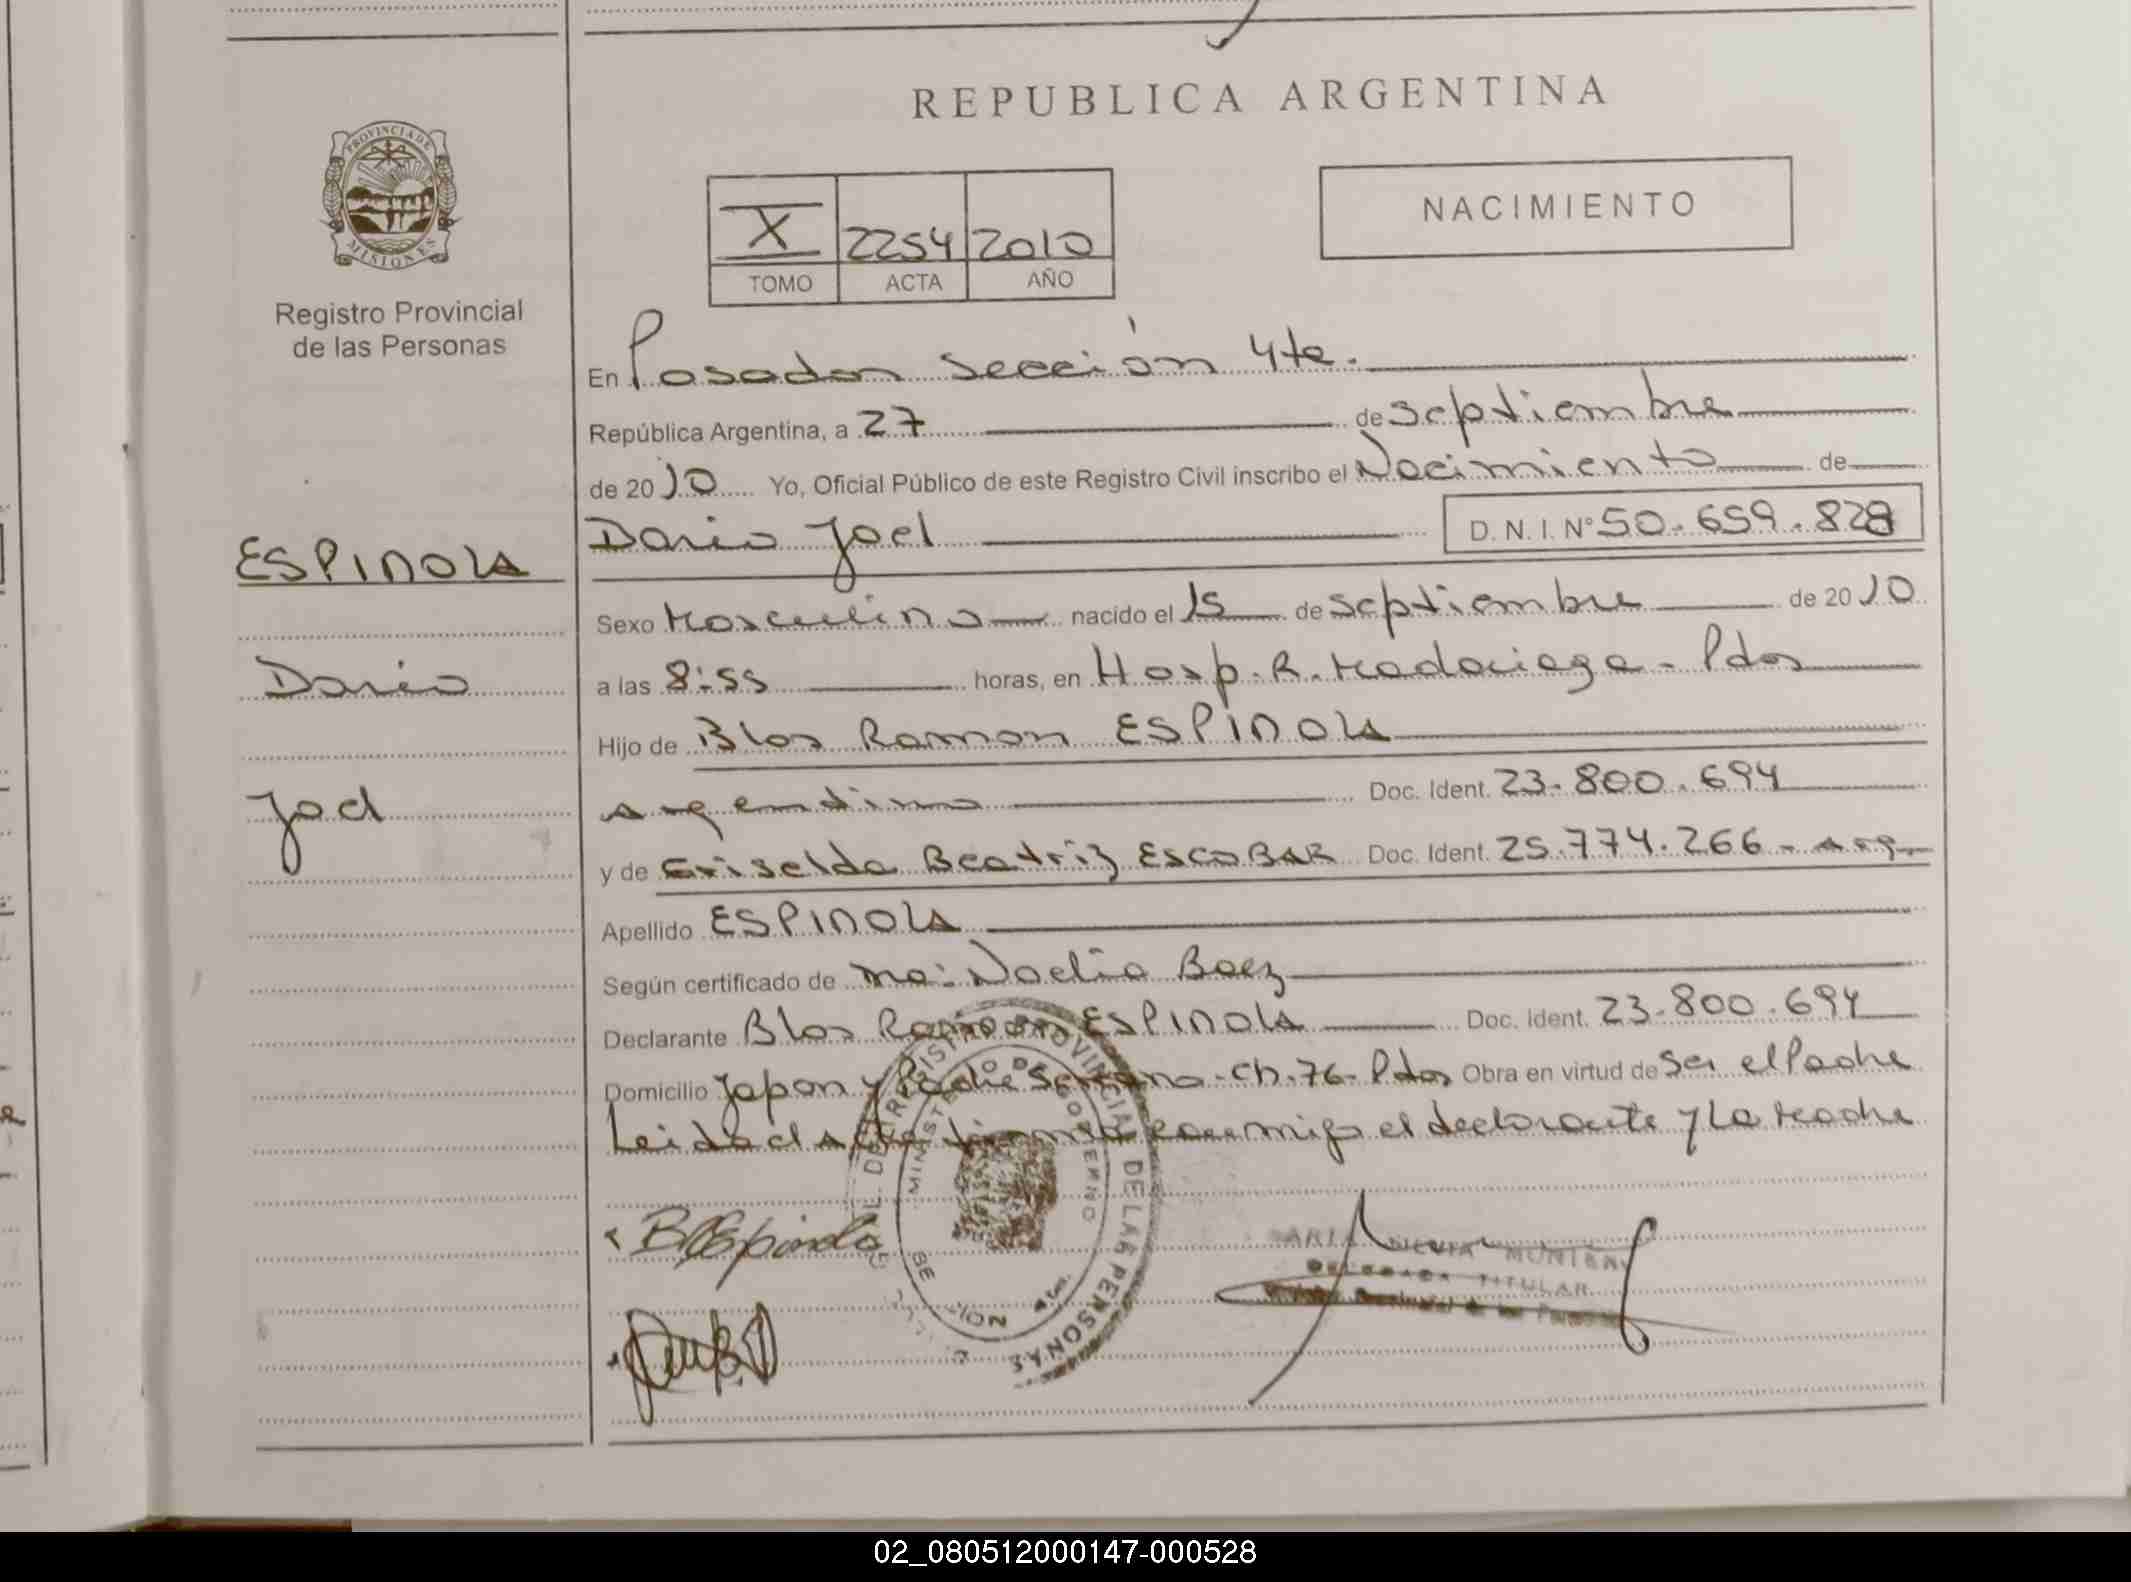 REPUBLICA ARGENTINA
PROVINCIA DE
MISIONES
Registro Provincial
de las Personas
X 2254 2010
TOMO ACTA AÑO
NACIMIENTO
En Posadas Sección 4ta.
República Argentina, a 27 de Septiembre
de 2010 Yo, Oficial Público de este Registro Civil inscribo el Nacimiento de
Dario Joel D. N. I. Nº 50.659.828
ESPINOLA
Dario
Joel
Sexo Masculino nacido el 15 de Septiembre de 2010
a las 8:55 horas, en Hosp. R. Madariaga - Pdas
Hijo de Blas Ramon ESPINOLA
argentino Doc. Ident. 23.800.694
y de Griselda Beatriz ESCOBAR Doc. Ident. 25.774.266 - arg.
Apellido ESPINOLA
Según certificado de ma: Noelia Baez
Declarante Blas Ramon ESPINOLA Doc. Ident. 23.800.694
Domicilio Japon y Padre Serrano - Ch. 76 - Pdas Obra en virtud de Ser el Padre
Leida el Acta firma conmigo el declarante y La Madre
REGISTRO PROVINCIAL DE LAS PERSONAS
MINISTERIO DE GOBIERNO
B Espinola
DELEGADA TITULAR
02_080512000147-000528